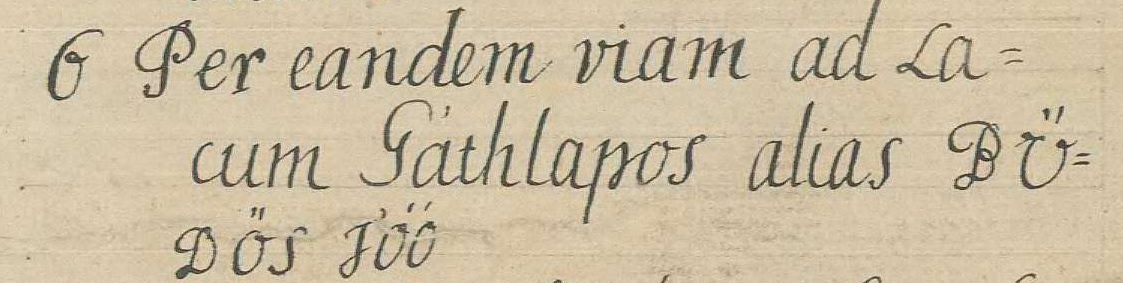 6 Per eandem viam ad La=
cum Gáthlapos alias BÖ=
DÖS Jöö